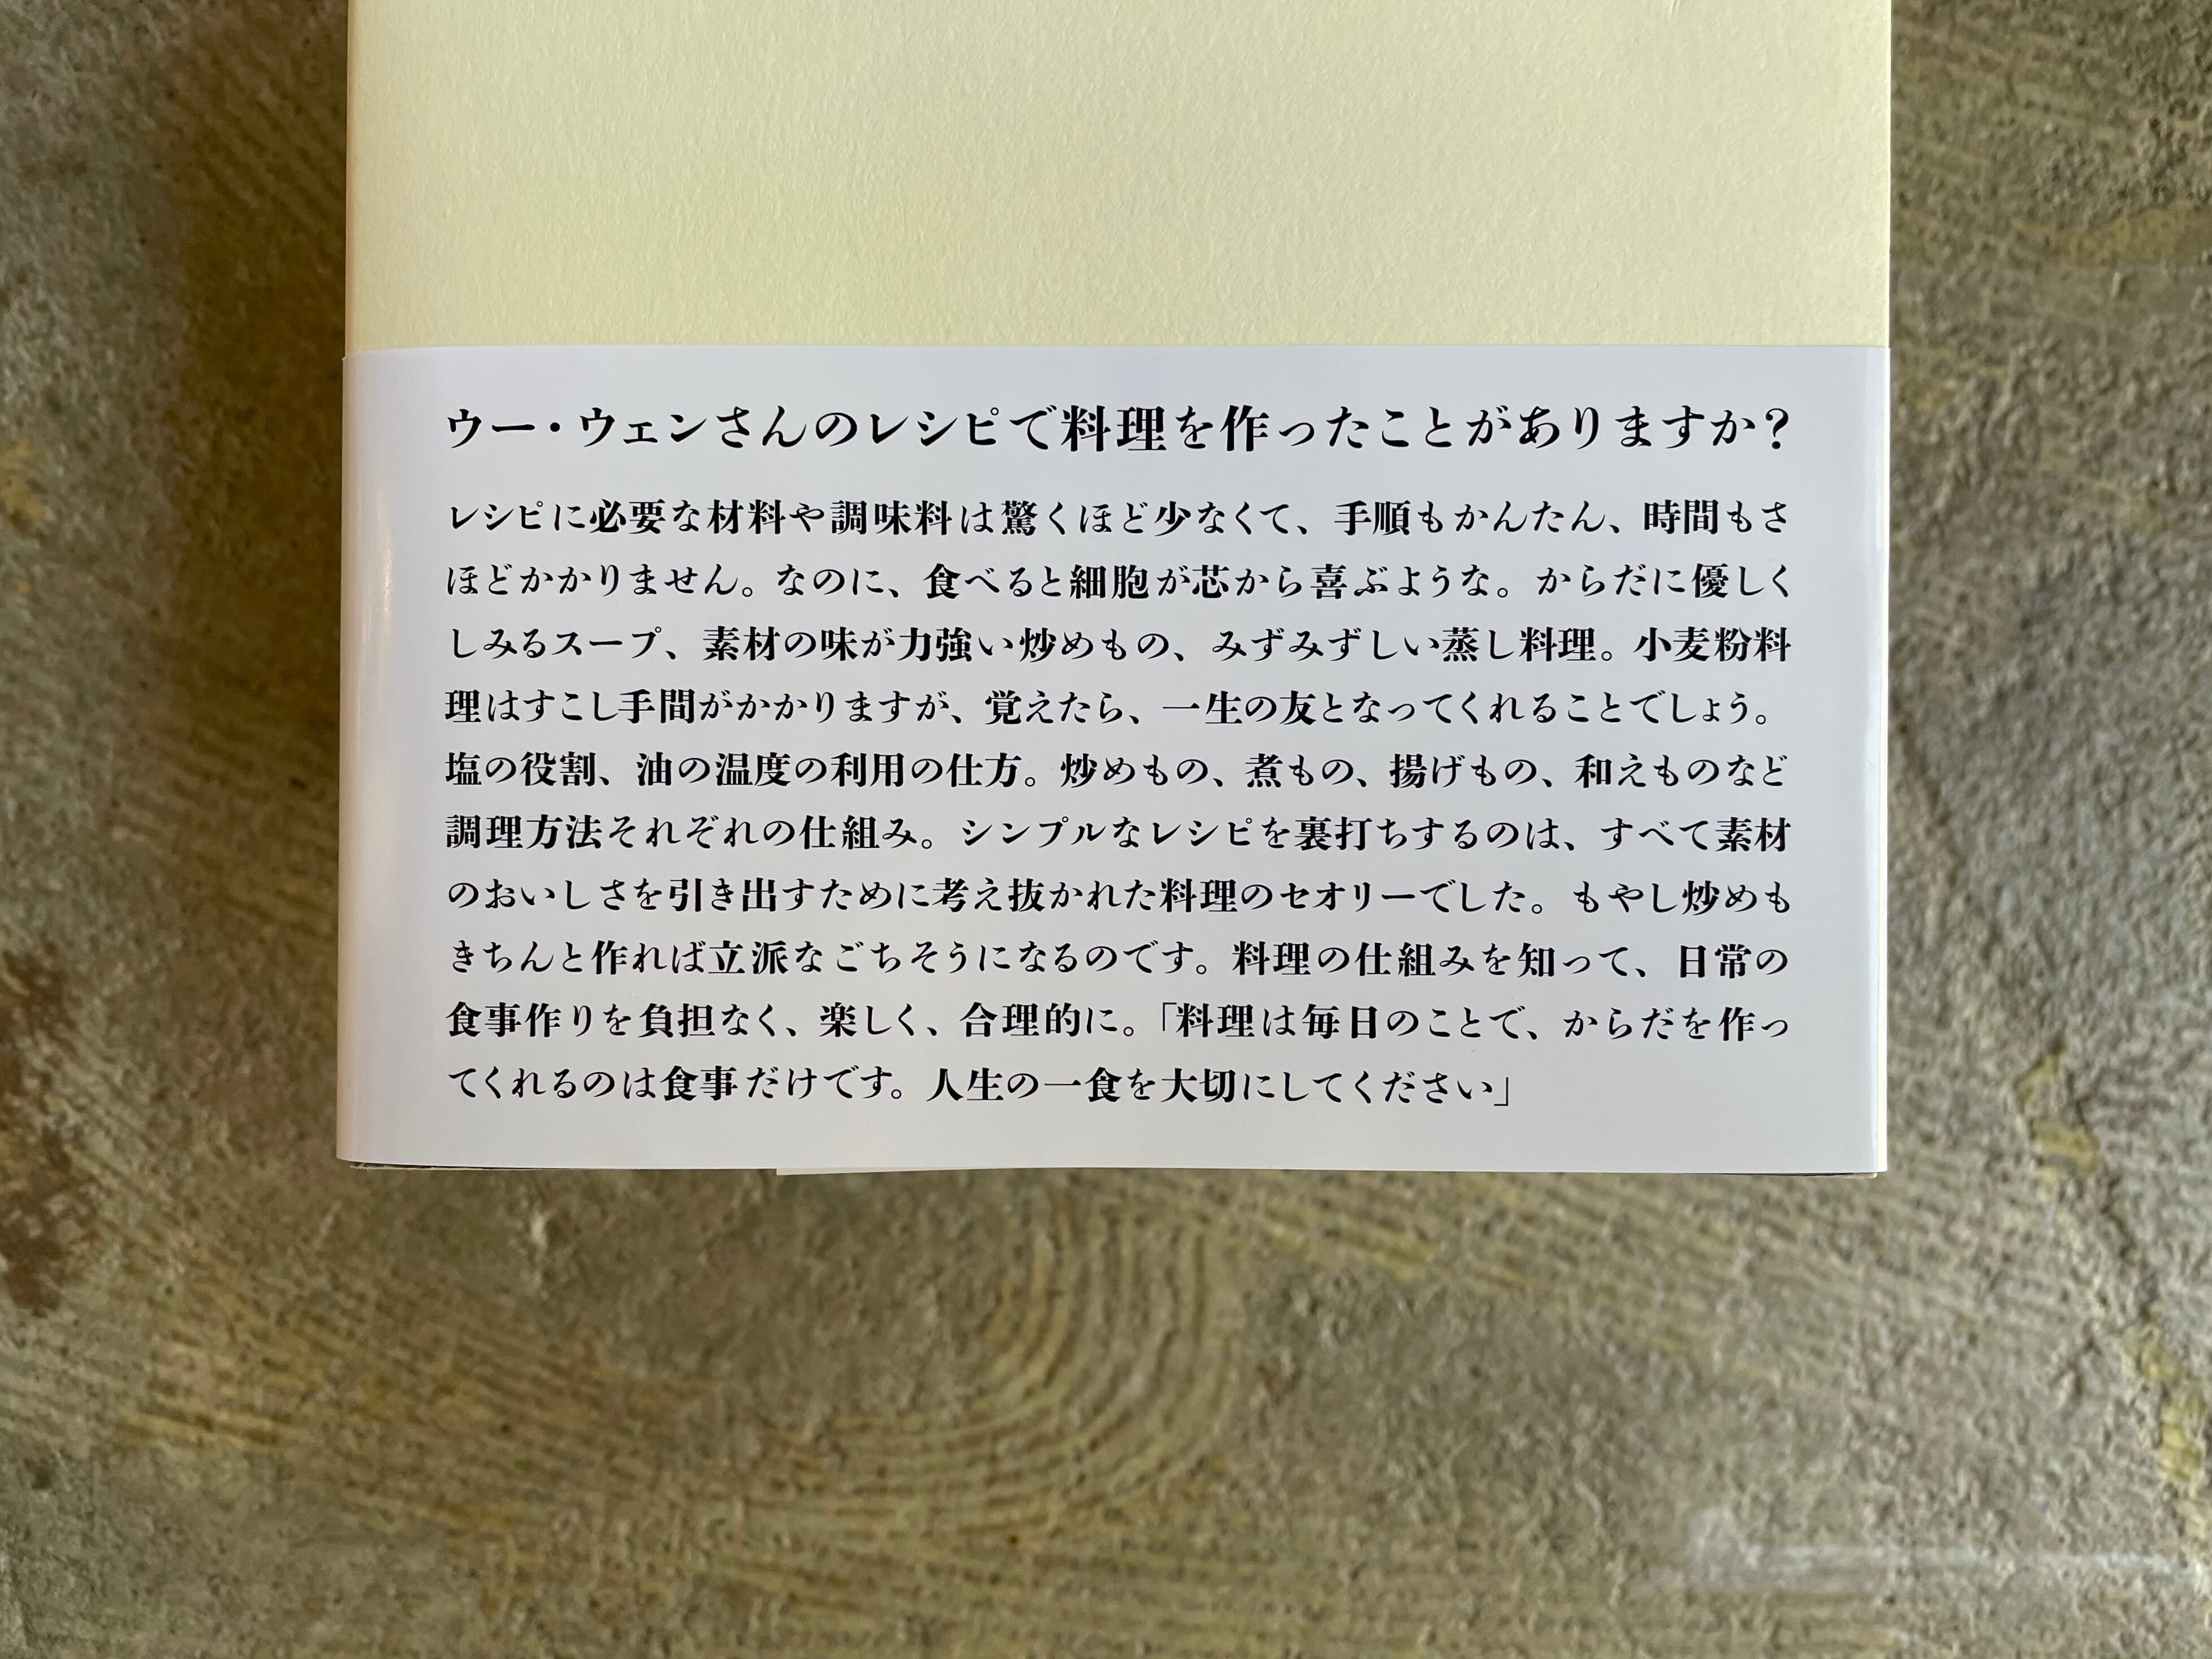 ウー・ウェンさんのレシピで料理を作ったことがありますか？
レシピに必要な材料や調味料は驚くほど少なくて、手順もかんたん、時間もさ
ほどかかりません。なのに、食べると細胞が芯から喜ぶような。からだに優しく
しみるスープ、素材の味が力強い炒めもの、みずみずしい蒸し料理。小麦粉料
理はすこし手間がかかりますが、覚えたら、一生の友となってくれることでしょう。
塩の役割、油の温度の利用の仕方。炒めもの、煮もの、揚げもの、和えものなど
調理方法それぞれの仕組み。シンプルなレシピを裏打ちするのは、すべて素材
のおいしさを引き出すために考え抜かれた料理のセオリーでした。もやし炒めも
きちんと作れば立派なごちそうになるのです。料理の仕組みを知って、日常の
食事作りを負担なく、楽しく、合理的に。「料理は毎日のことで、からだを作っ
てくれるのは食事だけです。人生の一食を大切にしてください」